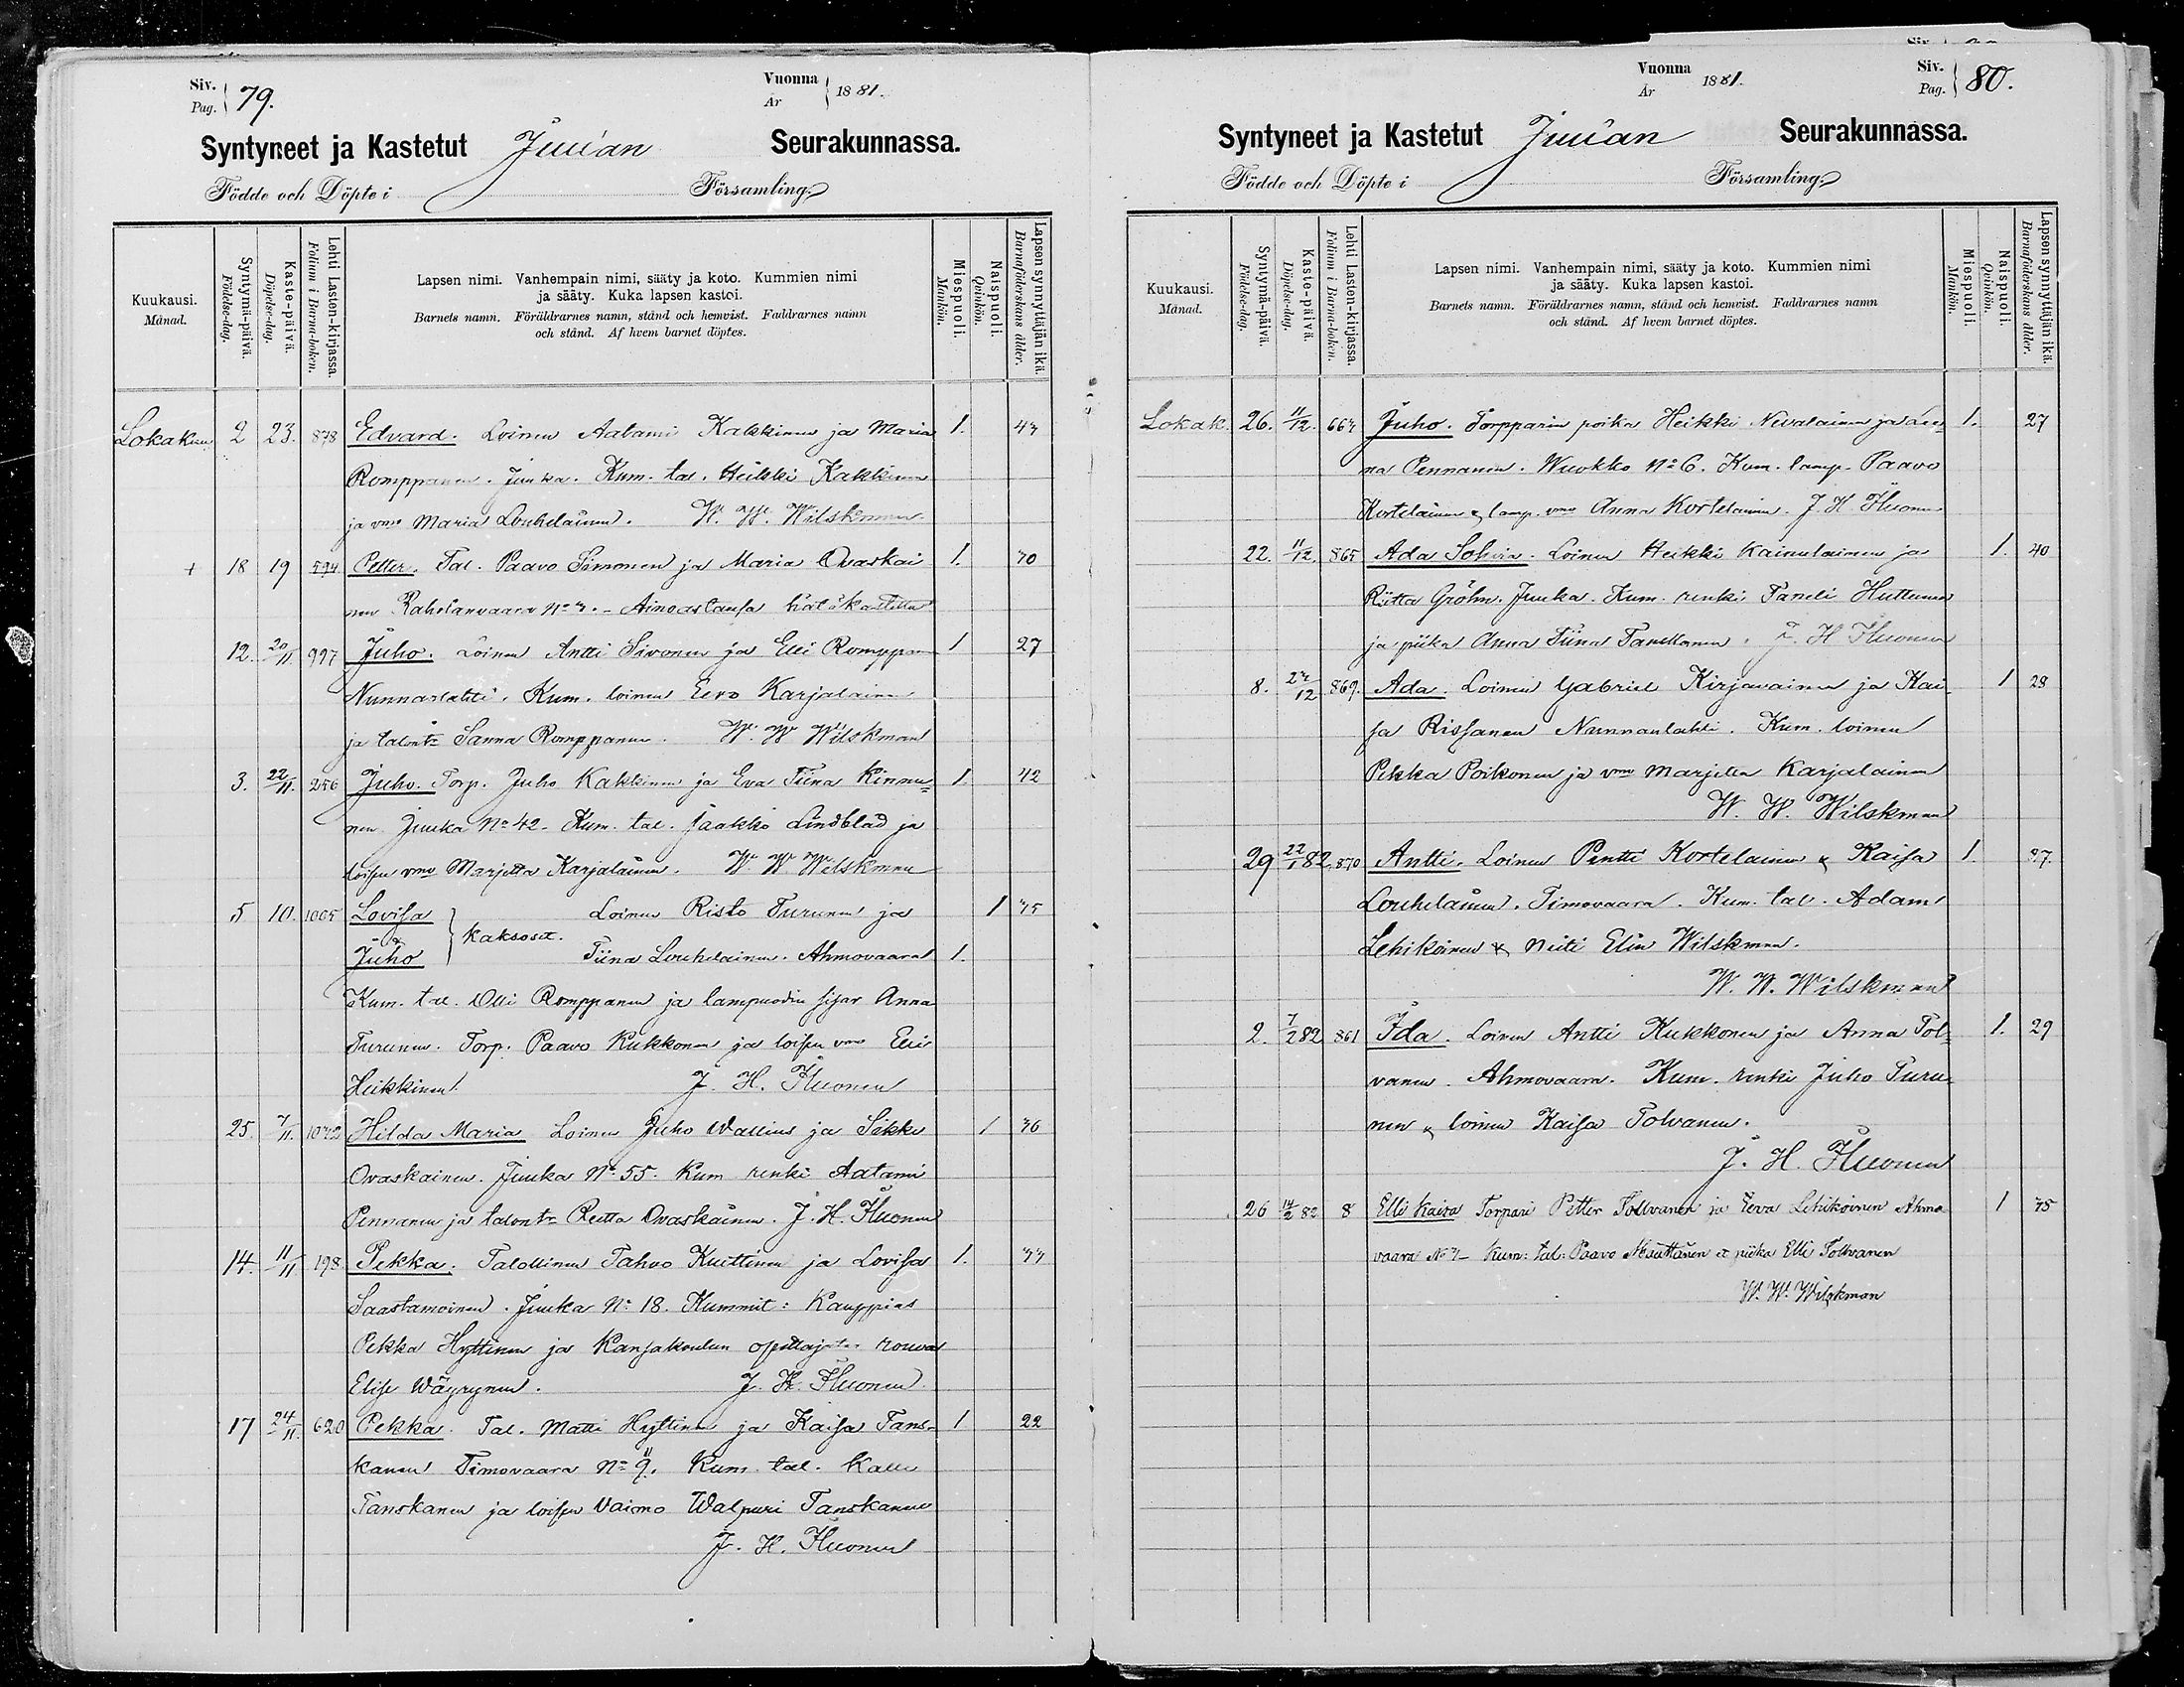 Siv.
Pag. 79.
Vuonna
År 1881.
Syntyneet ja Kastetut Juuan Seurakunnassa.
Födde och Döpte i Församling.
Kuukausi.
Månad.
Syntymä-päivä.
Födelse-dag.
Kaste-päivä.
Döpelse-dag.
Lehti Lasten-kirjassa.
Folium i Barna-boken.
Lapsen nimi. Vanhempain nimi, sääty ja koto. Kummien nimi
ja sääty. Kuka lapsen kastoi.
Barnets namn. Föräldrarnes namn, stånd och hemvist. Faddrarnes namn
och stånd. Af hvem barnet döptes.
Miespuoli.
Mankön.
Naispuoli.
Qvinkön.
Lapsen synnyttäjän ikä.
Barnaföderskans ålder.
Lokakuu 2 23. 878 Edvard. Loinen Aatami Kakkinen ja Maria 1. 43
Romppanen. Juuka. Kum. tal. Heikki Kakkinen
ja vmo Maria Louhelainen. W. W. Wilskman
+ 18 19 594 Petter. Tal. Paavo Simonen ja Maria Ovaskai 1. 30
nen Rahelanvaara No 3. - Ainoastansa hätäkastettu
12. 20/11 997 Juho. Loinen Antti Sivonen ja Elli Romppan 1 27
Nunnanlahti. Kum. loinen Eero Karjalainen
ja talontr Sanna Romppanen. W. W Wilskman
3. 22/11. 256 Juho. Torp. Juho Kakkinen ja Eva Tiina Kinnu= 1. 42
nen Juuka No 42. Kum. tal. Jaakko Lindblad ja
loisen vmo Marjetta Karjalainen. W. W. Wilskman
5 10. 1005 Lovisa Loinen Risto Turunen ja 1 35
& kaksoset.
Juho Tiina Louhelainen. Ahmovaara 1.
Kum. tal. Olli Romppanen ja lampuodin sisar Anna
Turunen. Torp. Paavo Kukkonen ja loisen vmo Elli
Heikkinen. J. H. Huonen
25. 7/11. 1032 Hilda Maria Loinen Juho Wallius ja Sikke 1 36
Ovaskainen. Juuka No 55. Kum renki Aatami
Pennanen ja talontr Reetta Ovaskainen. J. H. Huonen
14. 11/11 198 Pekka. Talollinen Tahvo Kuittinen ja Lovisa 1. 33
Saastamoinen. Juuka No 18. Kummit: Kauppias
Pekka Hyttinen ja Kansakoulun opettajatar rouva
Elise Wäyrynen. J. H. Huonen
17 24/11. 620 Pekka. Tal. Matti Hyttinen ja Kaisa Tans- 1 22
kanen Timovaara No 9. Kum. tal. Kalle
Tanskanen ja loisen vaimo Walpuri Tanskanen
J. H. Huonen
Vuonna
År 1881.
Siv.
Pag. 80.
Syntyneet ja Kastetut Juuan Seurakunnassa.
Födde och Döpte i Församling.
Kuukausi.
Månad.
Syntymä-päivä.
Födelse-dag.
Kaste-päivä.
Döpelse-dag.
Lehti Lasten-kirjassa.
Folium i Barna-boken.
Lapsen nimi. Vanhempain nimi, sääty ja koto. Kummien nimi
ja sääty. Kuka lapsen kastoi.
Barnets namn. Föräldrarnes namn, stånd och hemvist. Faddrarnes namn
och stånd. Af hvem barnet döptes.
Miespuoli.
Mankön.
Naispuoli.
Qvinkön.
Lapsen synnyttäjän ikä.
Barnaföderskans ålder.
Lokak. 26. 11/12. 663 Juho. Torpparin poika Heikki Nevalainen ja An= 1. 27
na Pennanen. Wuokko No 6. Kum. lamp. Paavo
Kortelainen & lamp. vmo Anna Kortelainen. J. H. Huonen
22. 11/12. 865 Ada Sohvia. Loinen Heikki Kainulainen ja 1. 40
Riitta Gröhn. Juuka. Kum. renki Taneli Huttunen
ja piika Anna Tiina Tanskanen. J. H Huonen
8. 27/12 869. Ada. Loinen Gabriel Kirjavainen ja Kai- 1 28
sa Rissanen Nunnanlahti. Kum. loinen
Pekka Poikonen ja vmo Marjetta Karjalainen
W. W. Wilskman
29 22/1 82. 870 Antti. Loinen Pentti Kortelainen & Kaisa 1. 37.
Louhelainen. Timovaara. Kum. tal. Adam
Lehikoinen & Neiti Elin Wilskman.
W. W. Wilskman
2. 7/2 82 861 Ida. Loinen Antti Kukkonen ja Anna Tol- 1. 29
vanen. Ahmovaara. Kum. renki Juho Turu-
nen & loinen Kaisa Tolvanen.
J. H. Huonen
26 14/2 82 8 Elli Kaisa Torpari Petter Tolvanen ja Eeva Lehikoinen Ahmo 1 35
vaara No 7- Kum: tal: Paavo Miettinen & piika Elli Tolvanen
W. W. Wilskman